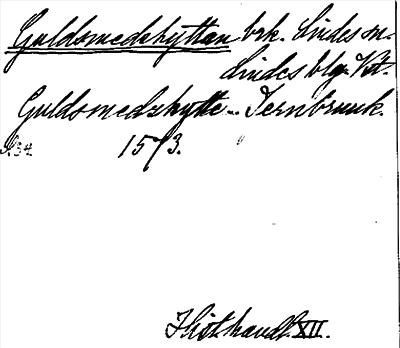 Guldsmedshyttan brk. Lindes sn.
Lindes blg. Vstl.
Guldsmedshytte- Jernbruuk.
s. 34. 1573.
Hist. handl. XII.